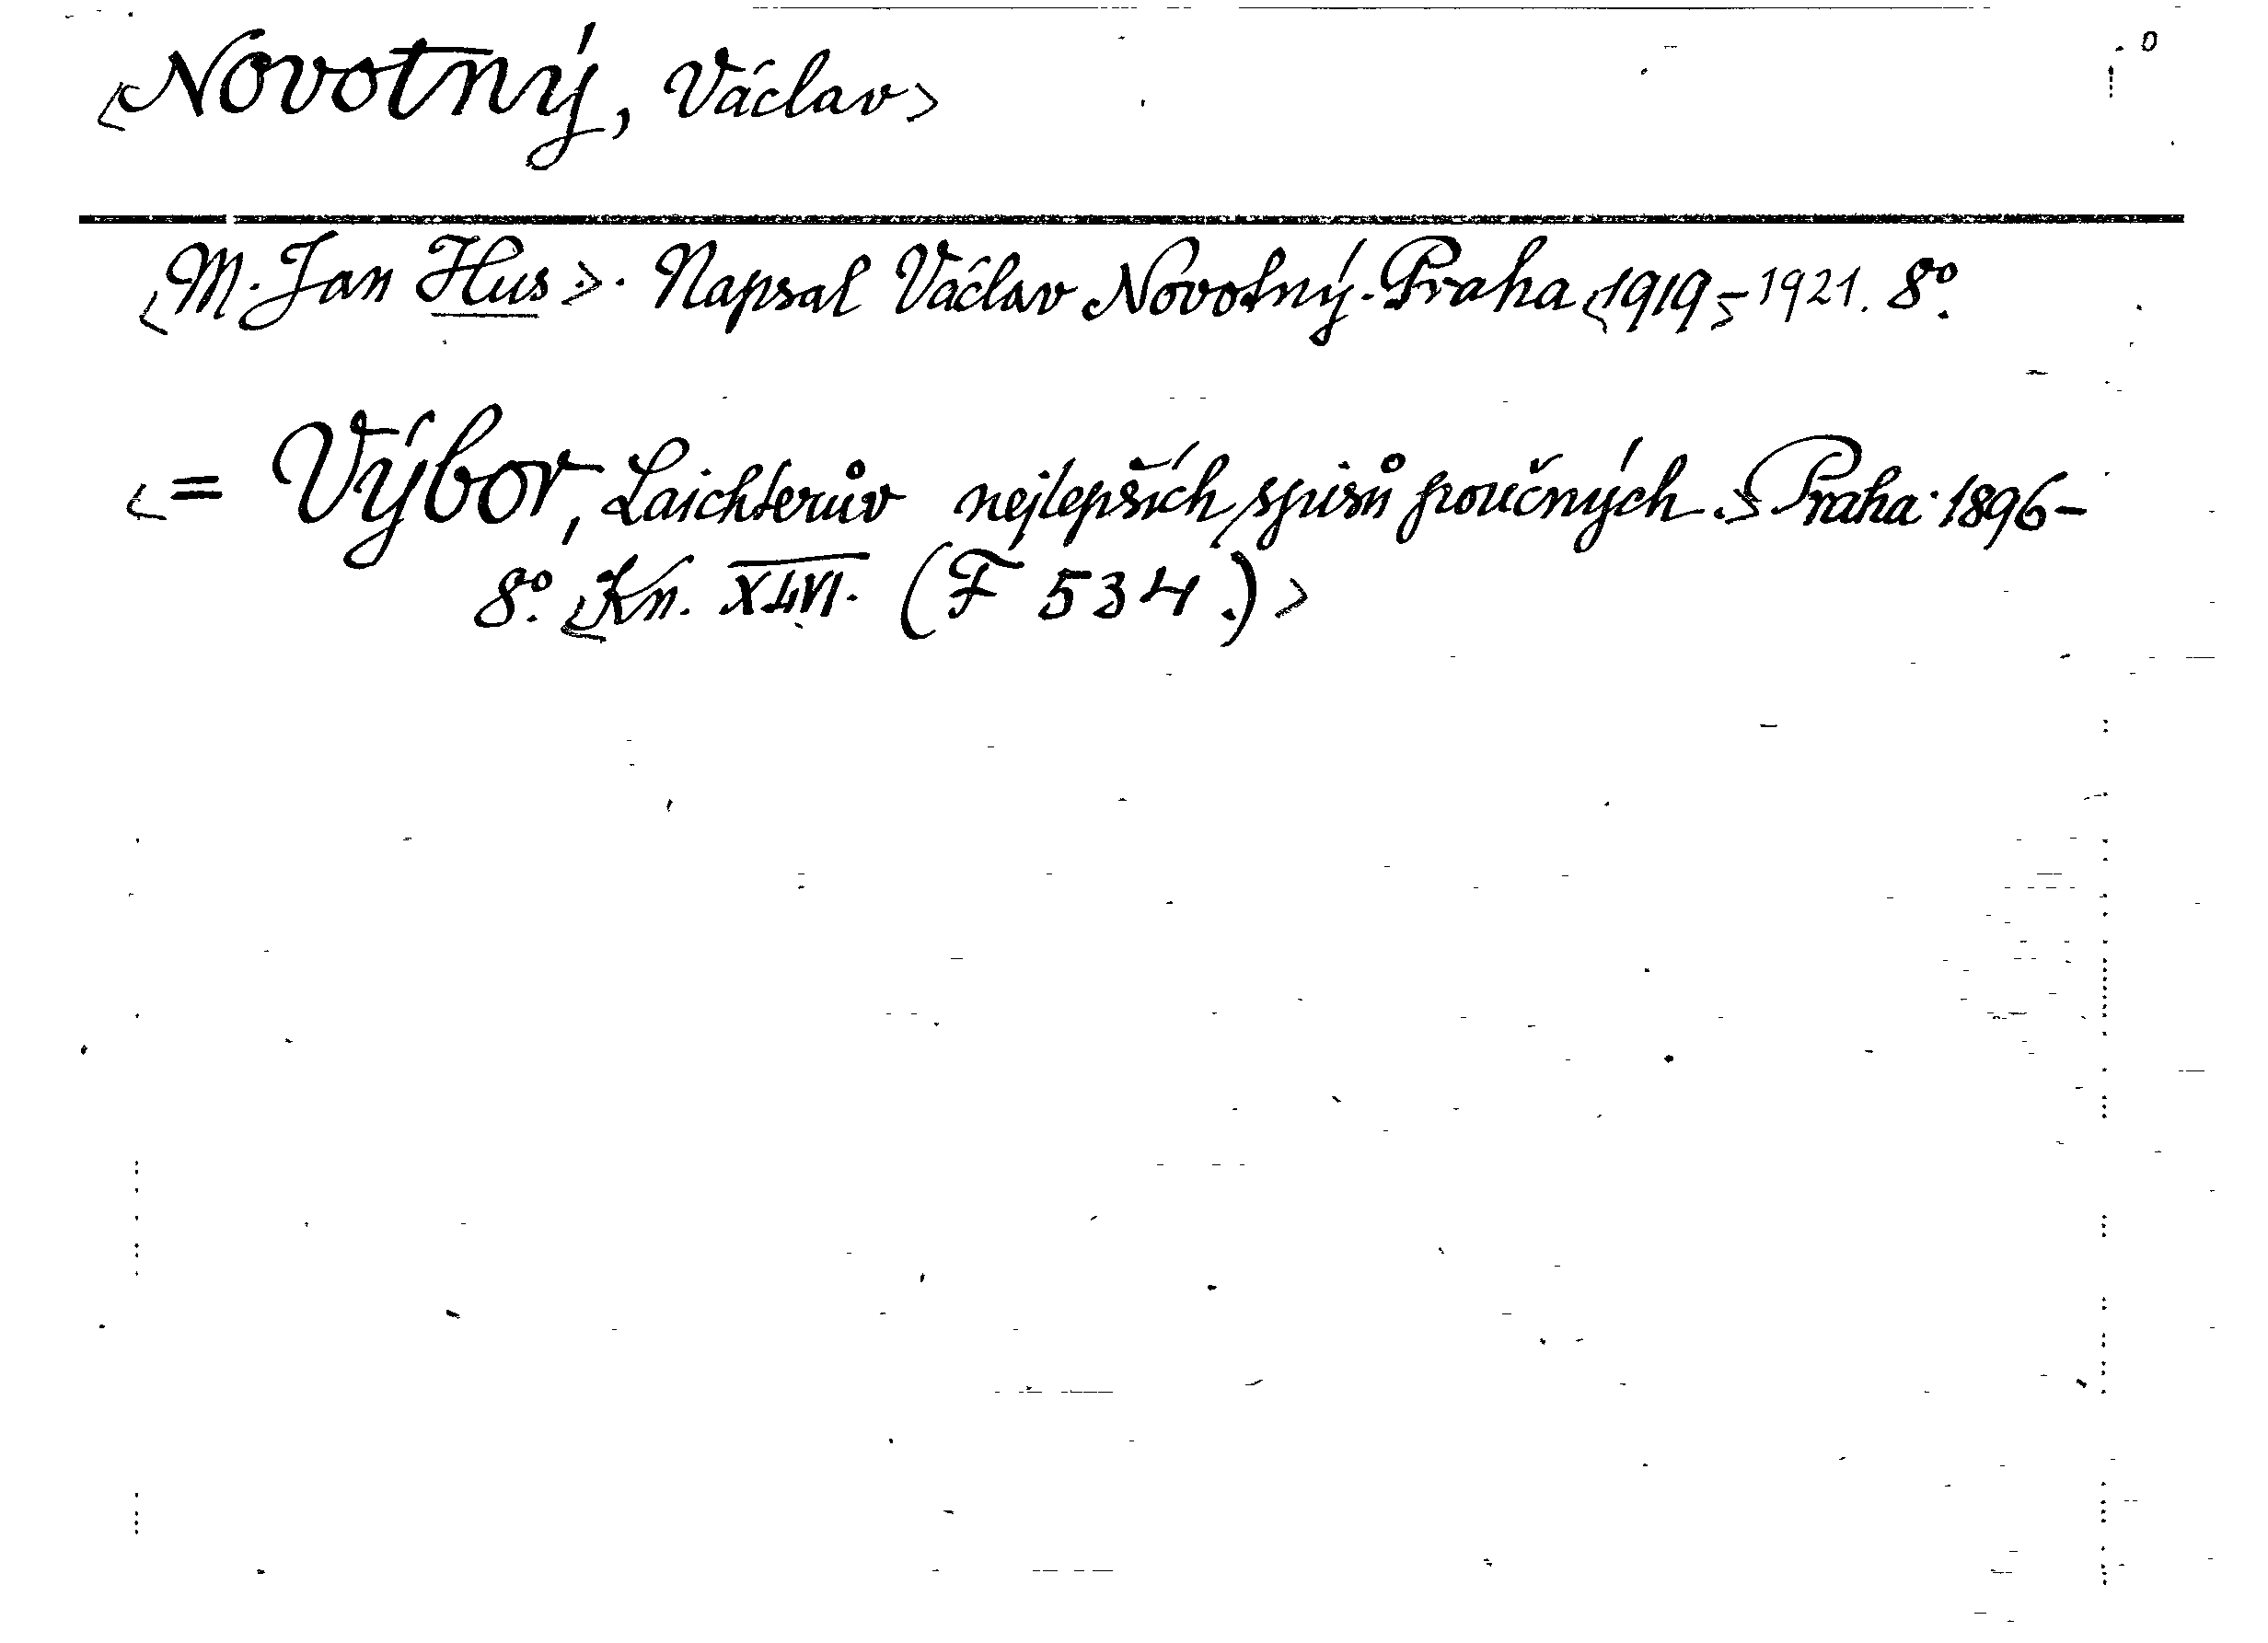 <Novotný, Václav>
<M. Jan Hus>. Napsal Václav Novotný. Praha <1919>-1921. 8º.
<= Výbor, Laichterův nejlepších spisů poučných.> Praha. 1896-
8º. <Kn. XLVI. (F 534.)>